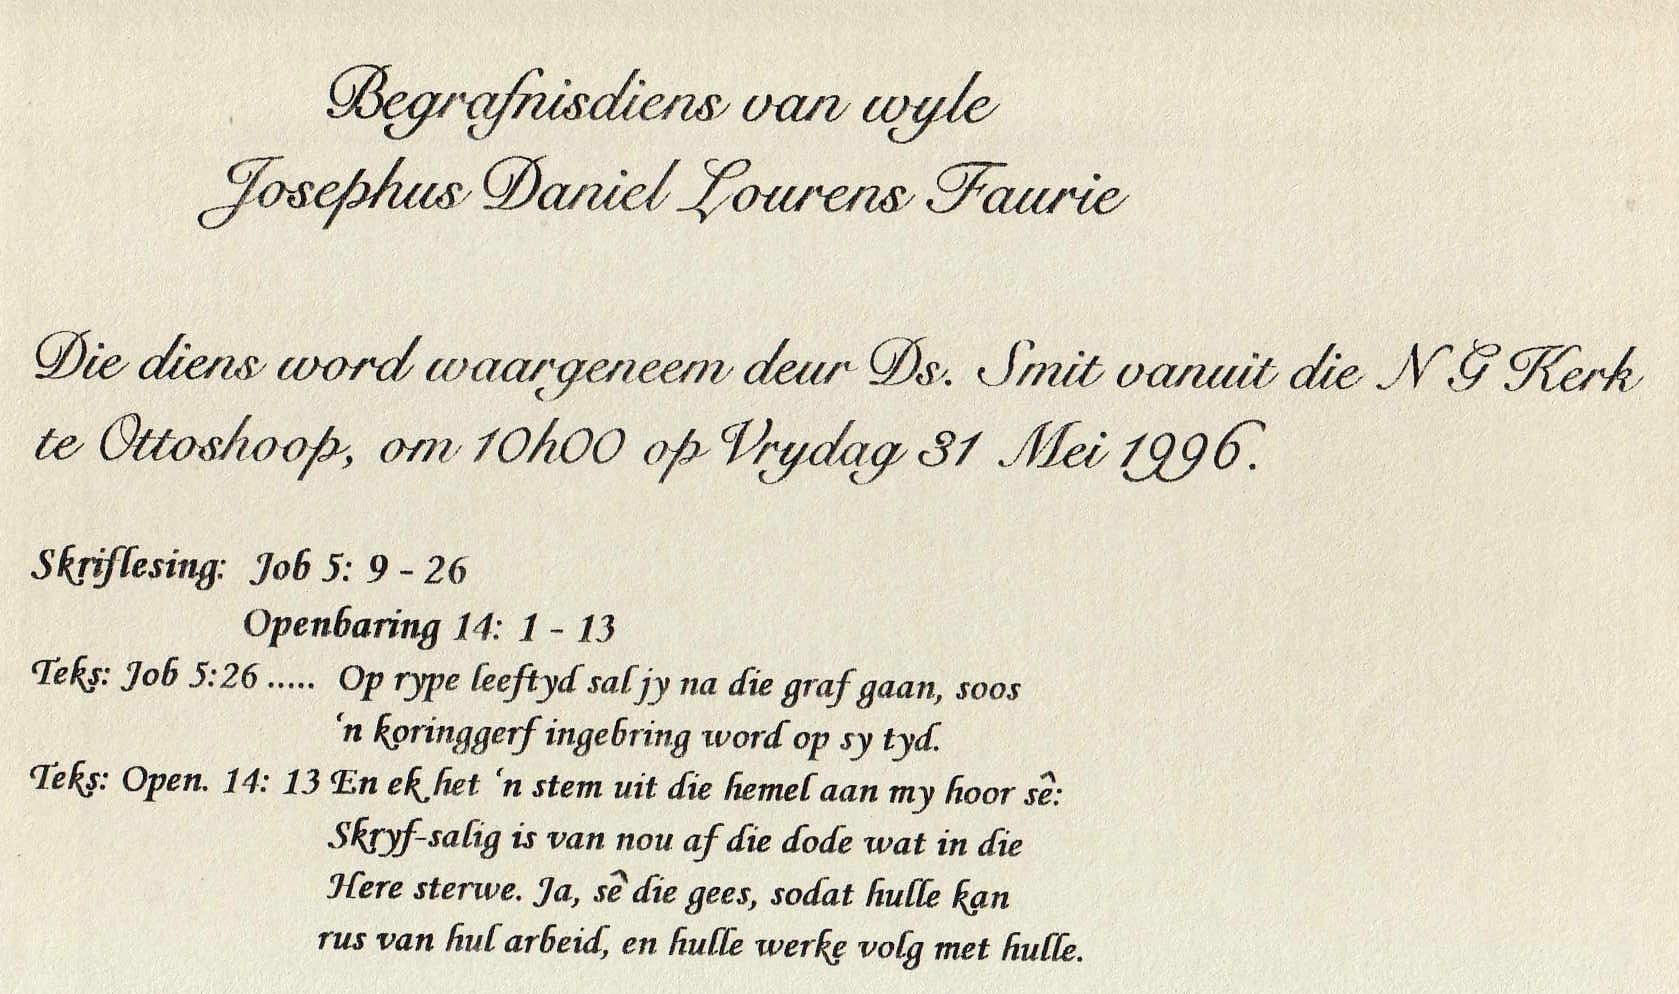 Begrafnisdiens van wyle
Josephus Daniel Lourens Faurie
Die diens word waargeneem deur Ds. Smit vanuit die N G Kerk
te Ottoshoop, om 10h00 op Vrydag 31 Mei 1996.
Skriflesing: Job 5: 9 - 26
Openbaring 14: 1 - 13
Teks: Job 5:26 ..... Op rype leeftyd sal jy na die graf gaan, soos
'n koringgerf ingebring word op sy tyd.
Teks: Open. 14: 13 En ek het 'n stem uit die hemel aan my hoor sê:
Skryf-salig is van nou af die dode wat in die
Here sterwe. Ja, sê die gees, sodat hulle kan
rus van hul arbeid, en hulle werke volg met hulle.